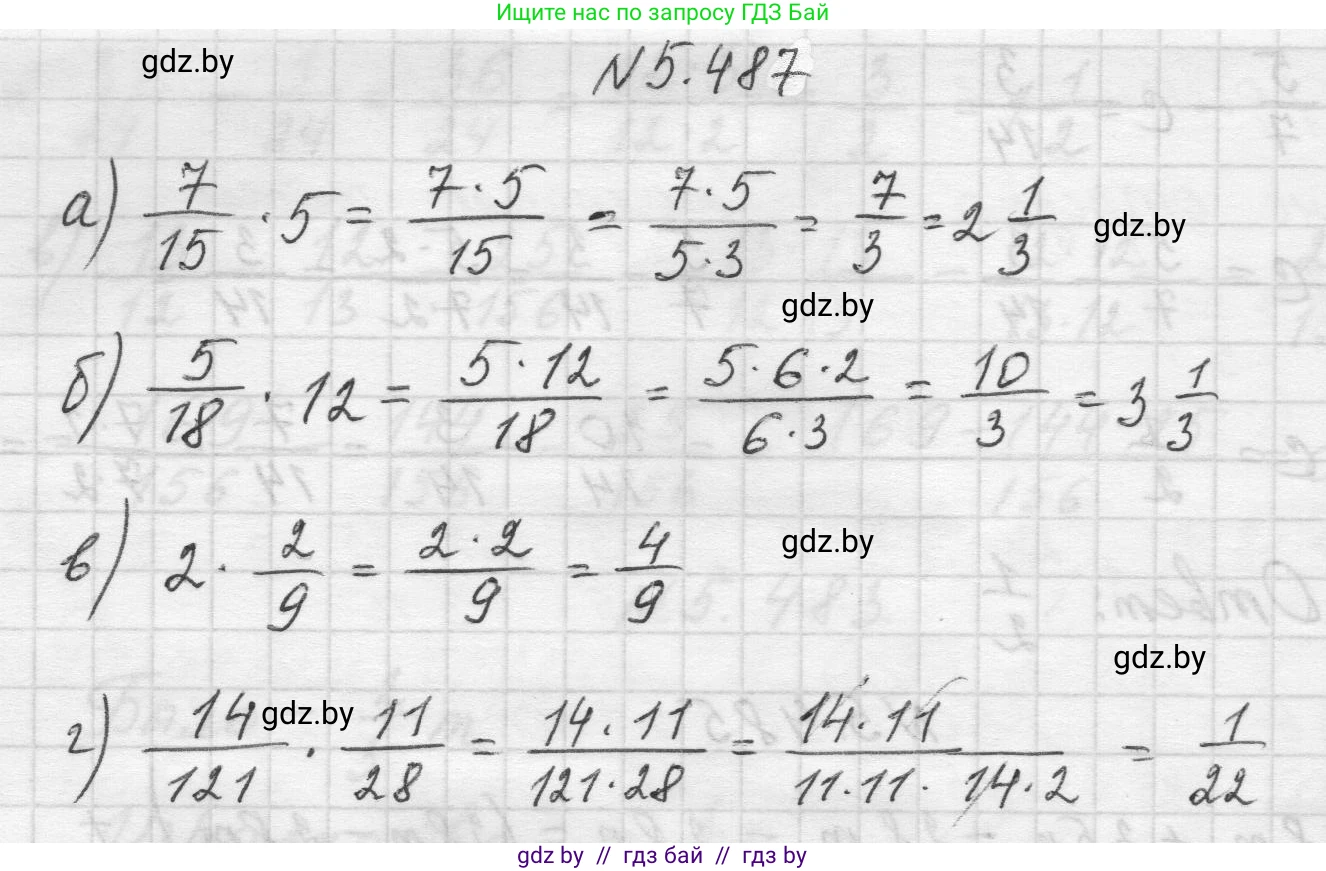 Ищите нас по запросу ГДЗ Бай
gdz.by
N 5.487
а) 7/15 · 5 = 7·5/15 = 7·5/5·3 = 7/3 = 2 1/3 gdz.by
gdz.by
б) 5/18 · 12 = 5·12/18 = 5·6·2/6·3 = 10/3 = 3 1/3
в) 2 · 2/9 = 2·2/9 = 4/9 gdz.by
gdz.by
г) 14/121 · 11/28 = 14·11/121·28 = 14·11/11·11·14·2 = 1/22
gdz.by
gdz by // гдз бай // гдз by